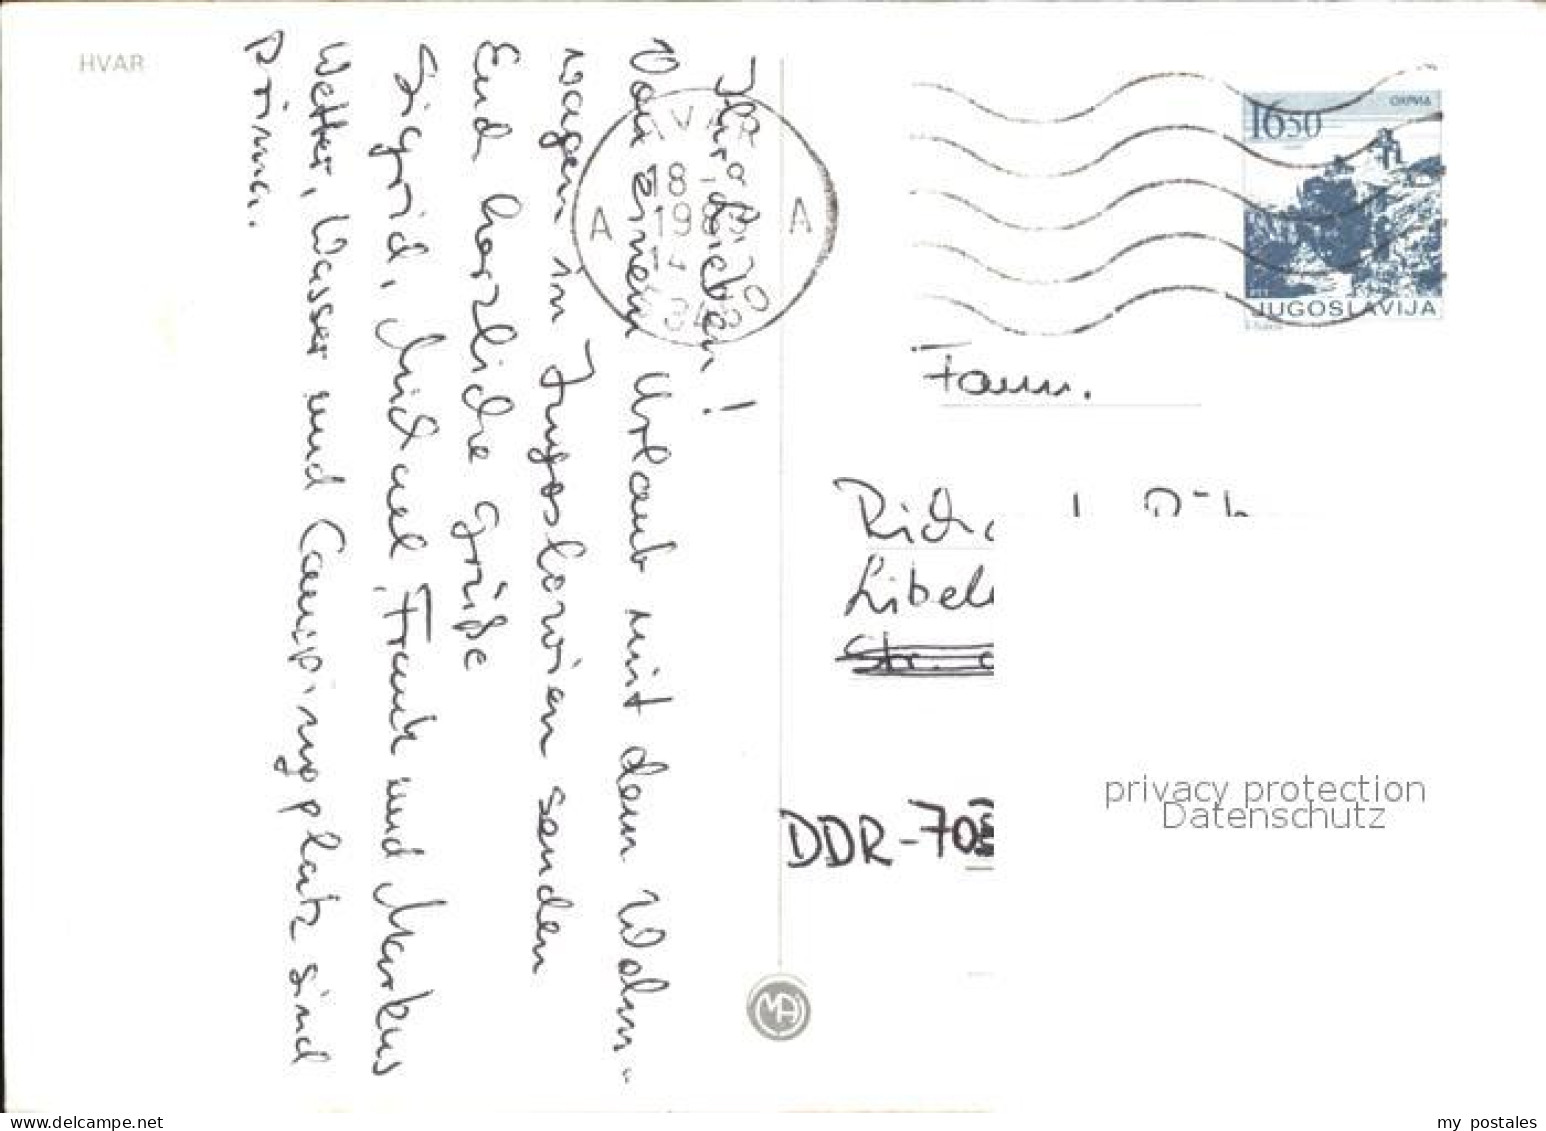 HVAR
Ihr Lieben!
Von einem Urlaub mit dem Wohn-
wagen in Jugoslawien senden
Euch herzliche Grüße
Sigrid, Michael, Frank und Markus
Wetter, Wasser und Campingplatz sind
prima.
HVAR
18
A A
16.50
JUGOSLAVIJA
Fam.
DDR-70
privacy protection
Datenschutz
my postales